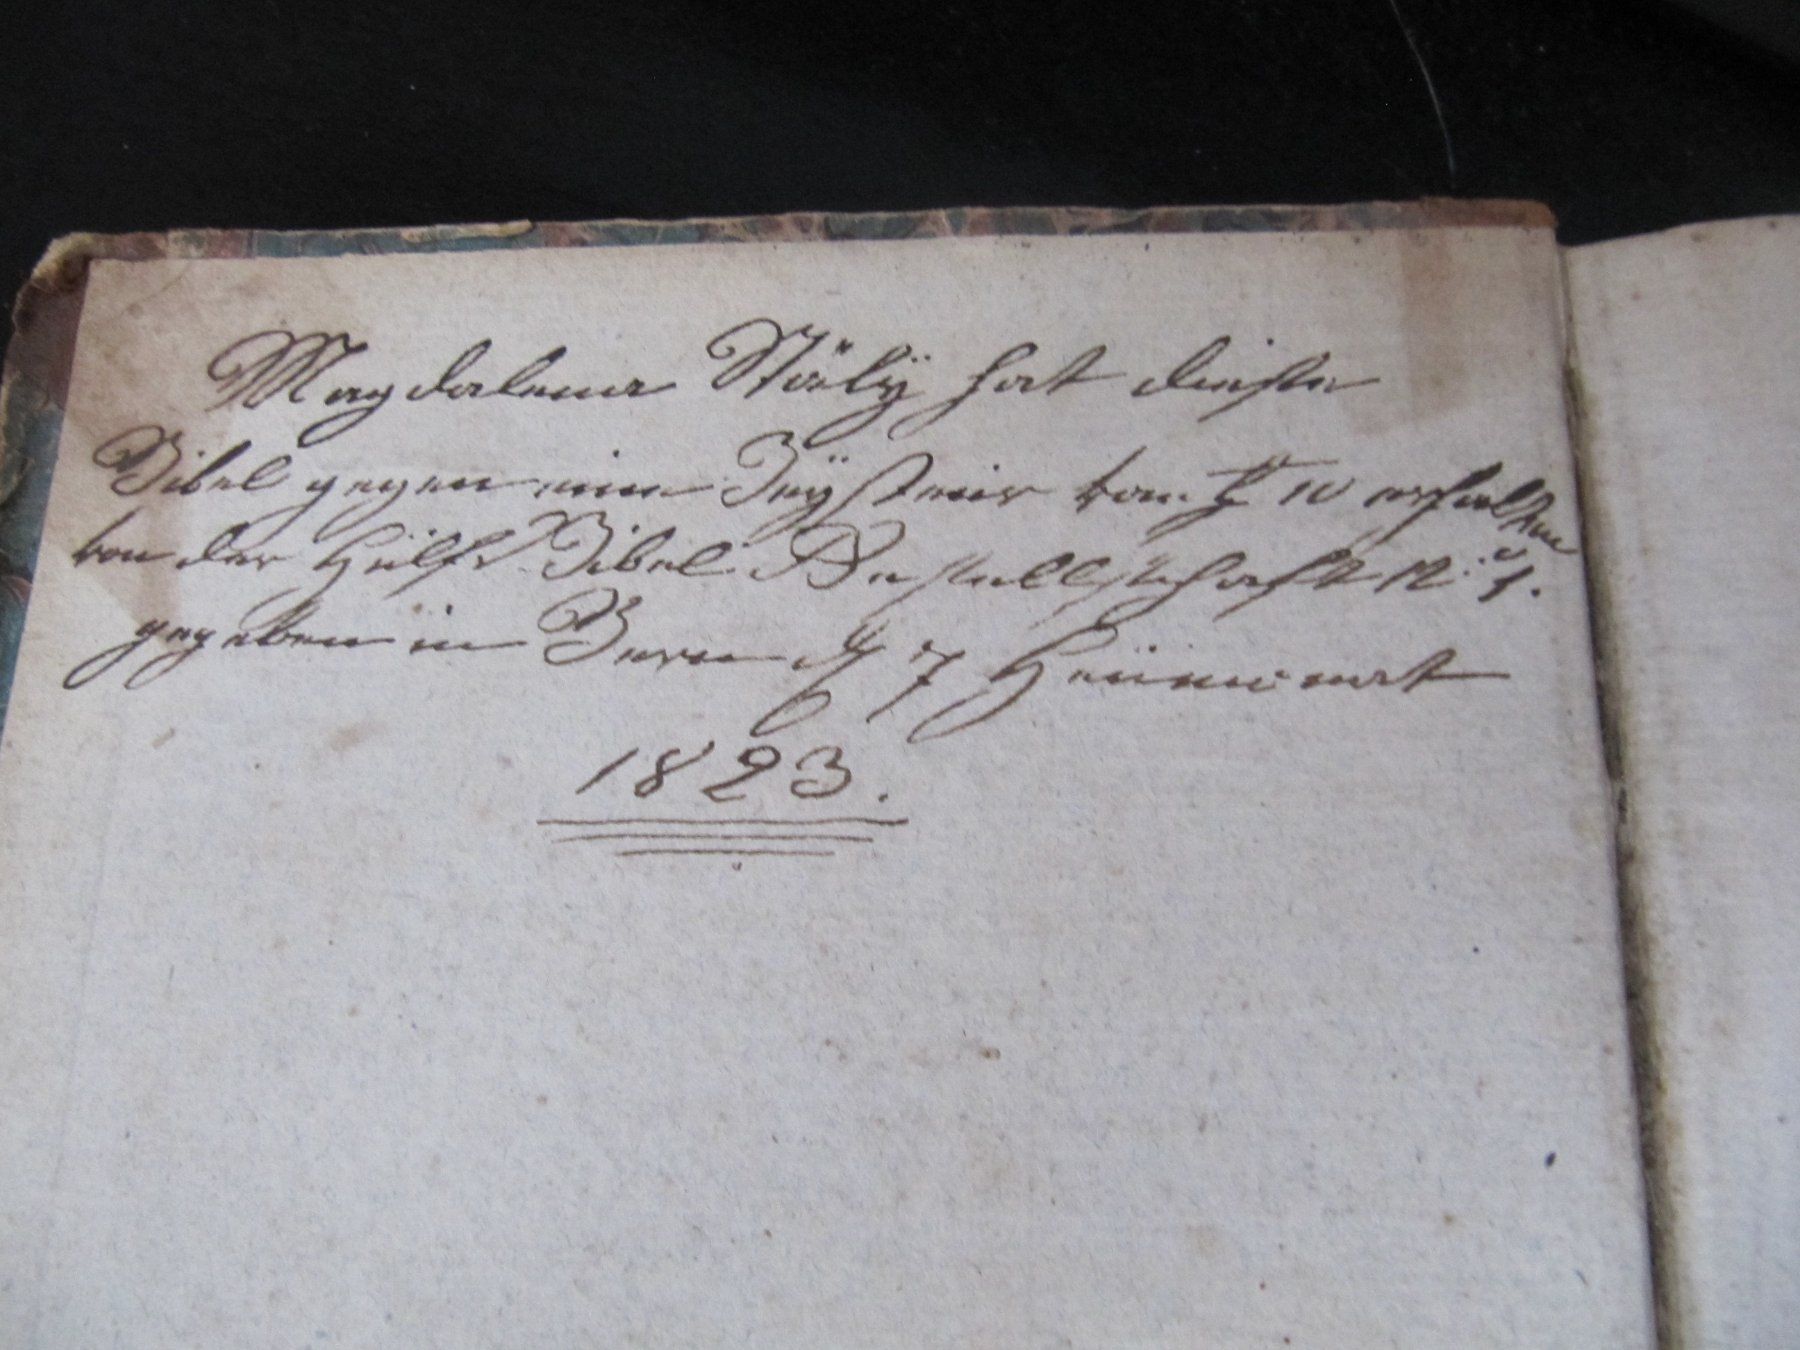 Magdalena Stäly hat dieße
Bibel gegen eine Beysteür von 10 erhalten
von der Hülfs Bibel Gesellschaft N.º 1.
gegeben in Bern 7 Heüwmat
1823.